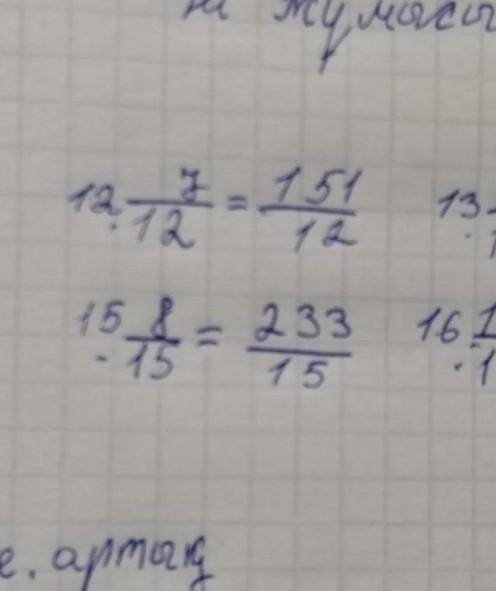 жұмысы
12 7/12 = 151/12 13
15 8/15 = 233/15 16
е. артық